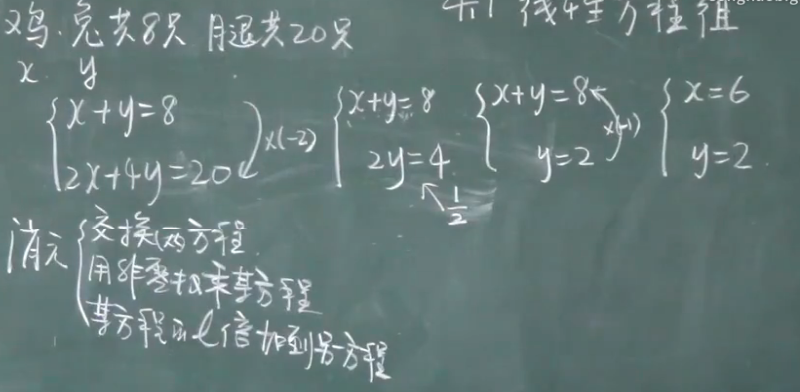 线性方程组
鸡.兔共8只 腿共20只
x y
{x+y=8 2x+4y=20 ×(-2) {x+y=8 2y=4 1/2 {x+y=8 y=2 ×(-1) {x=6 y=2.
消元{交换两方程.
用非零数乘某方程
某方程的l倍加到另方程